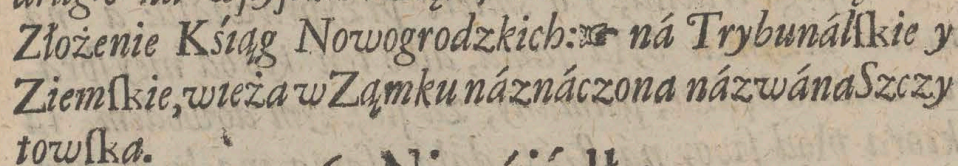 Złożenie Kśiąg Nowogrodzkich:☞ ná Trybunálſkie y
Ziemſkie,wieża w Ząmku náznáczona názwána Szczy
towſka.